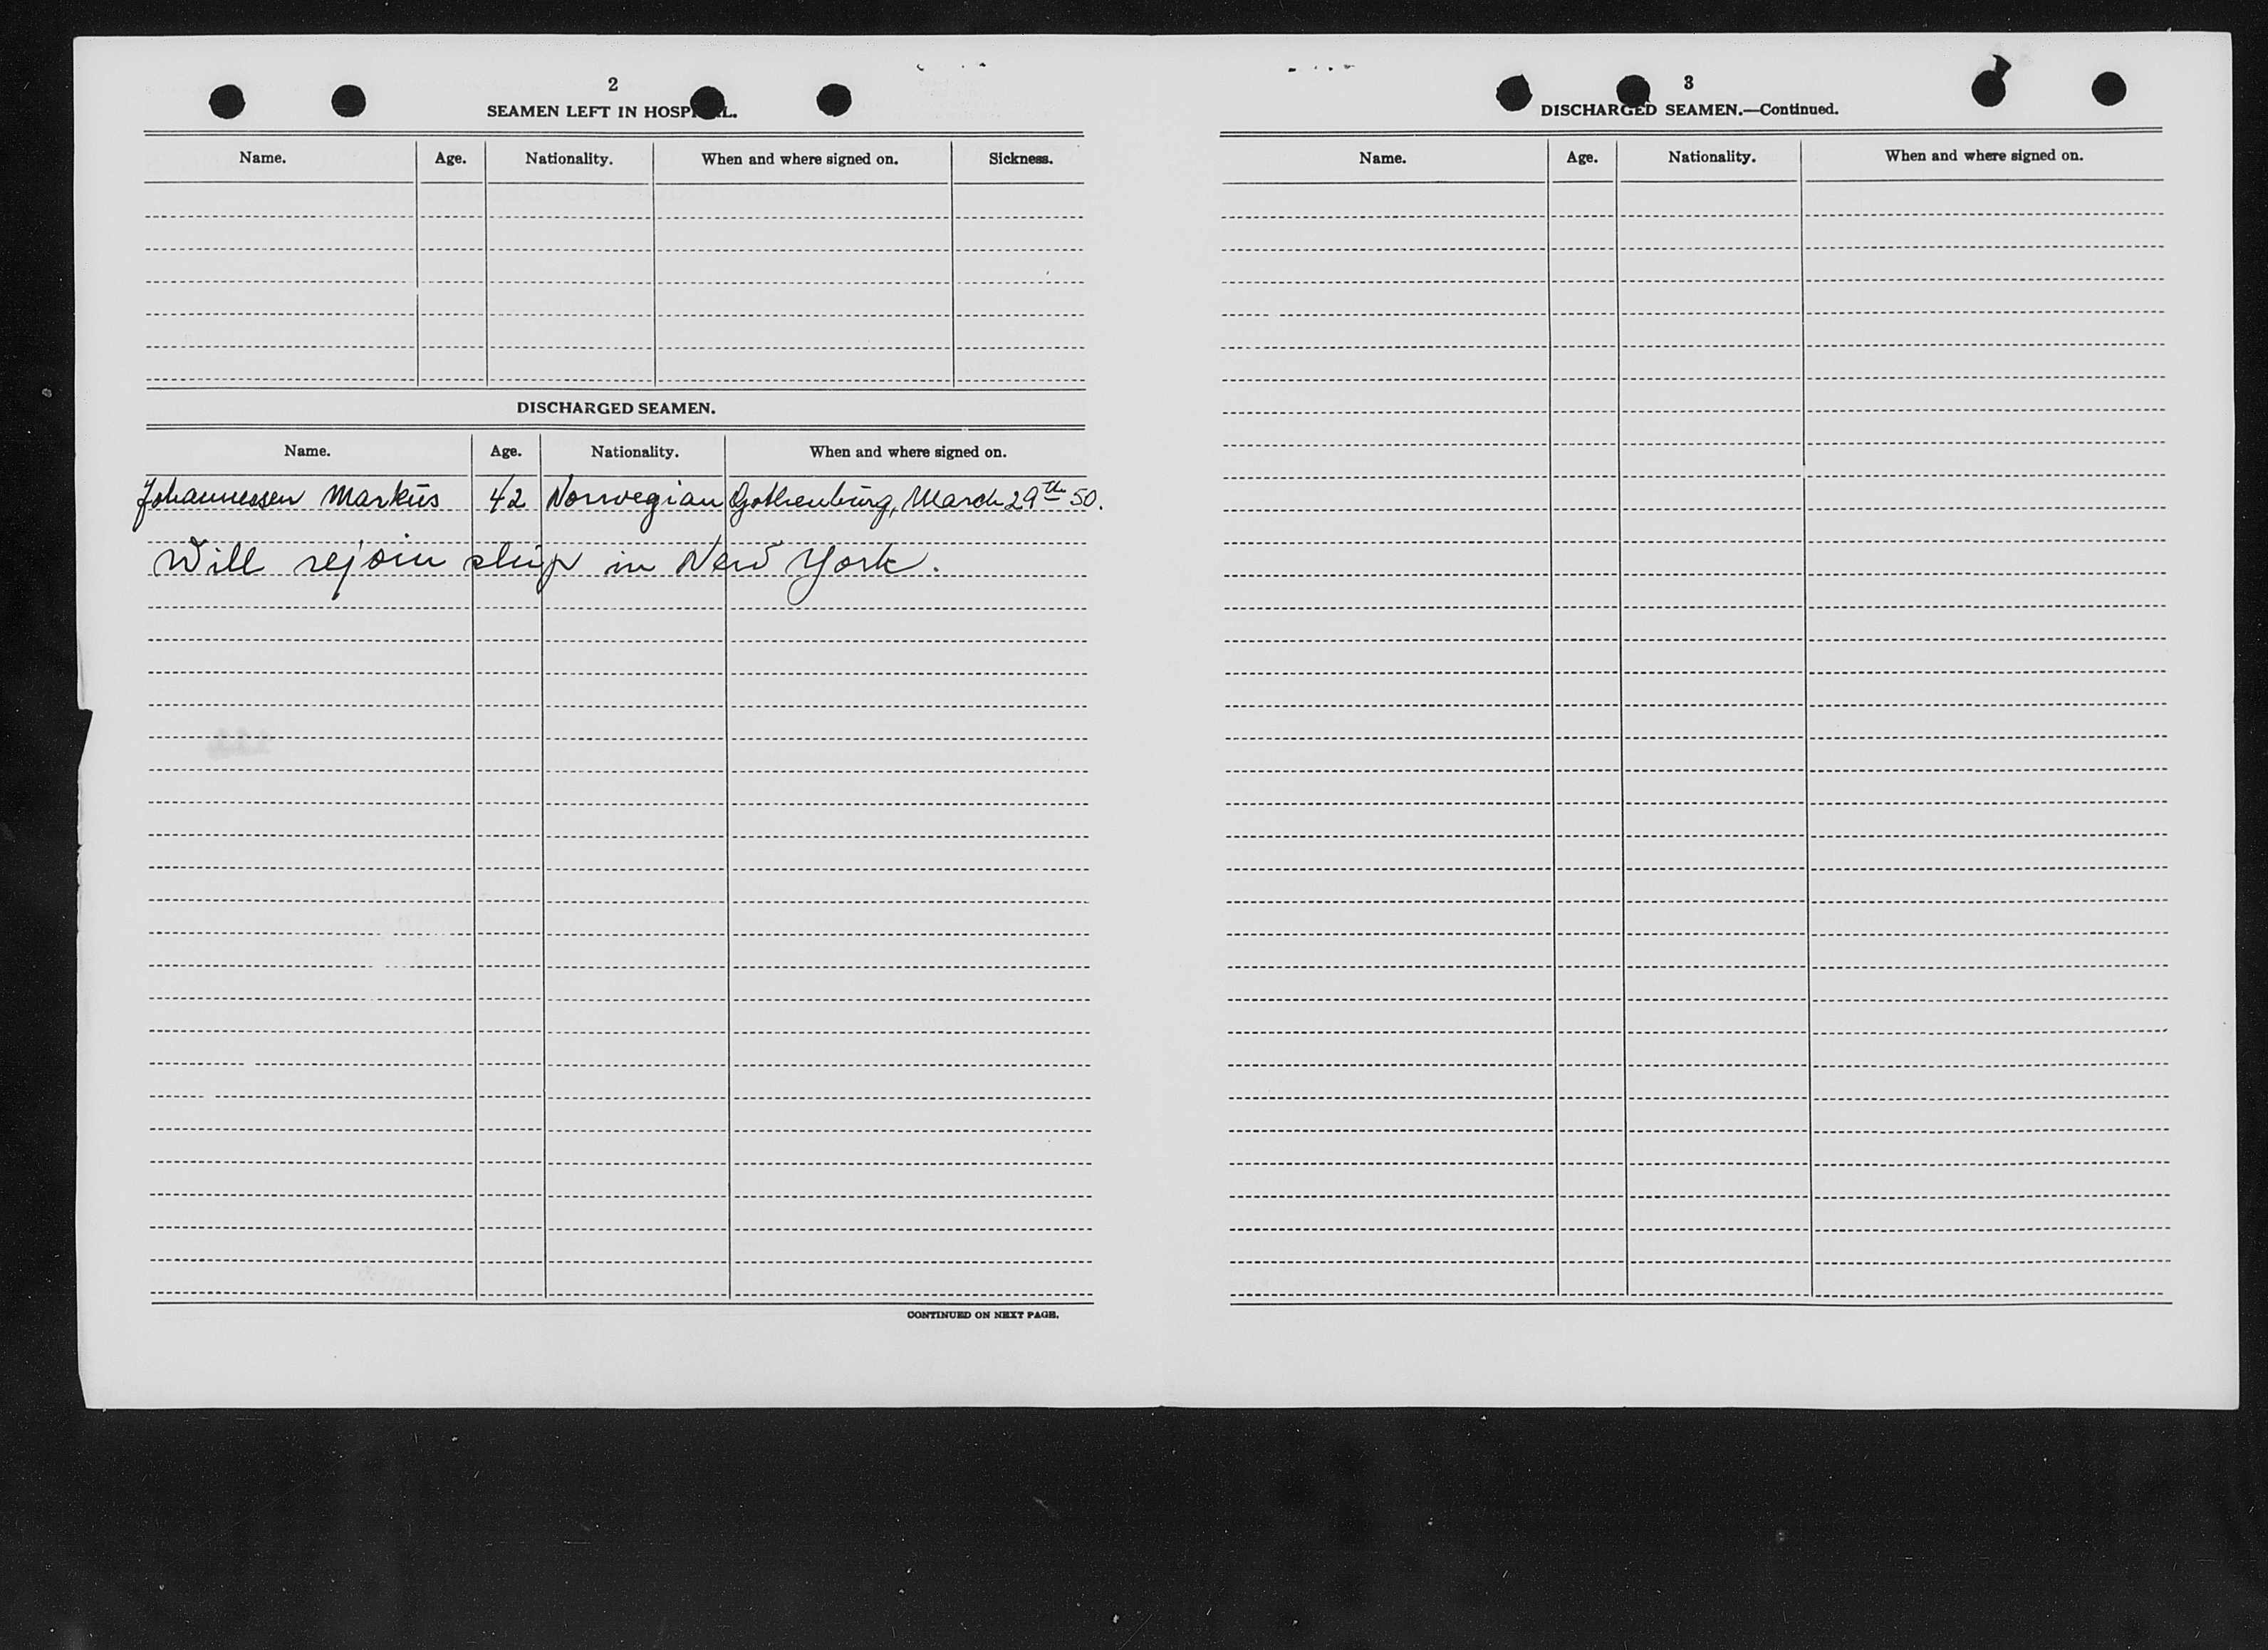 2
SEAMEN LEFT IN HOSPITAL.
Name. Age. Nationality. When and where signed on. Sickness.
DISCHARGED SEAMEN.
Name. Age. Nationality. When and where signed on.
Johannessen Markus 42 Norwegian Gothenburg, March 29th 50.
Will rejoin ship in New York.
CONTINUED ON NEXT PAGE.
3
DISCHARGED SEAMEN.—Continued.
Name. Age. Nationality. When and where signed on.